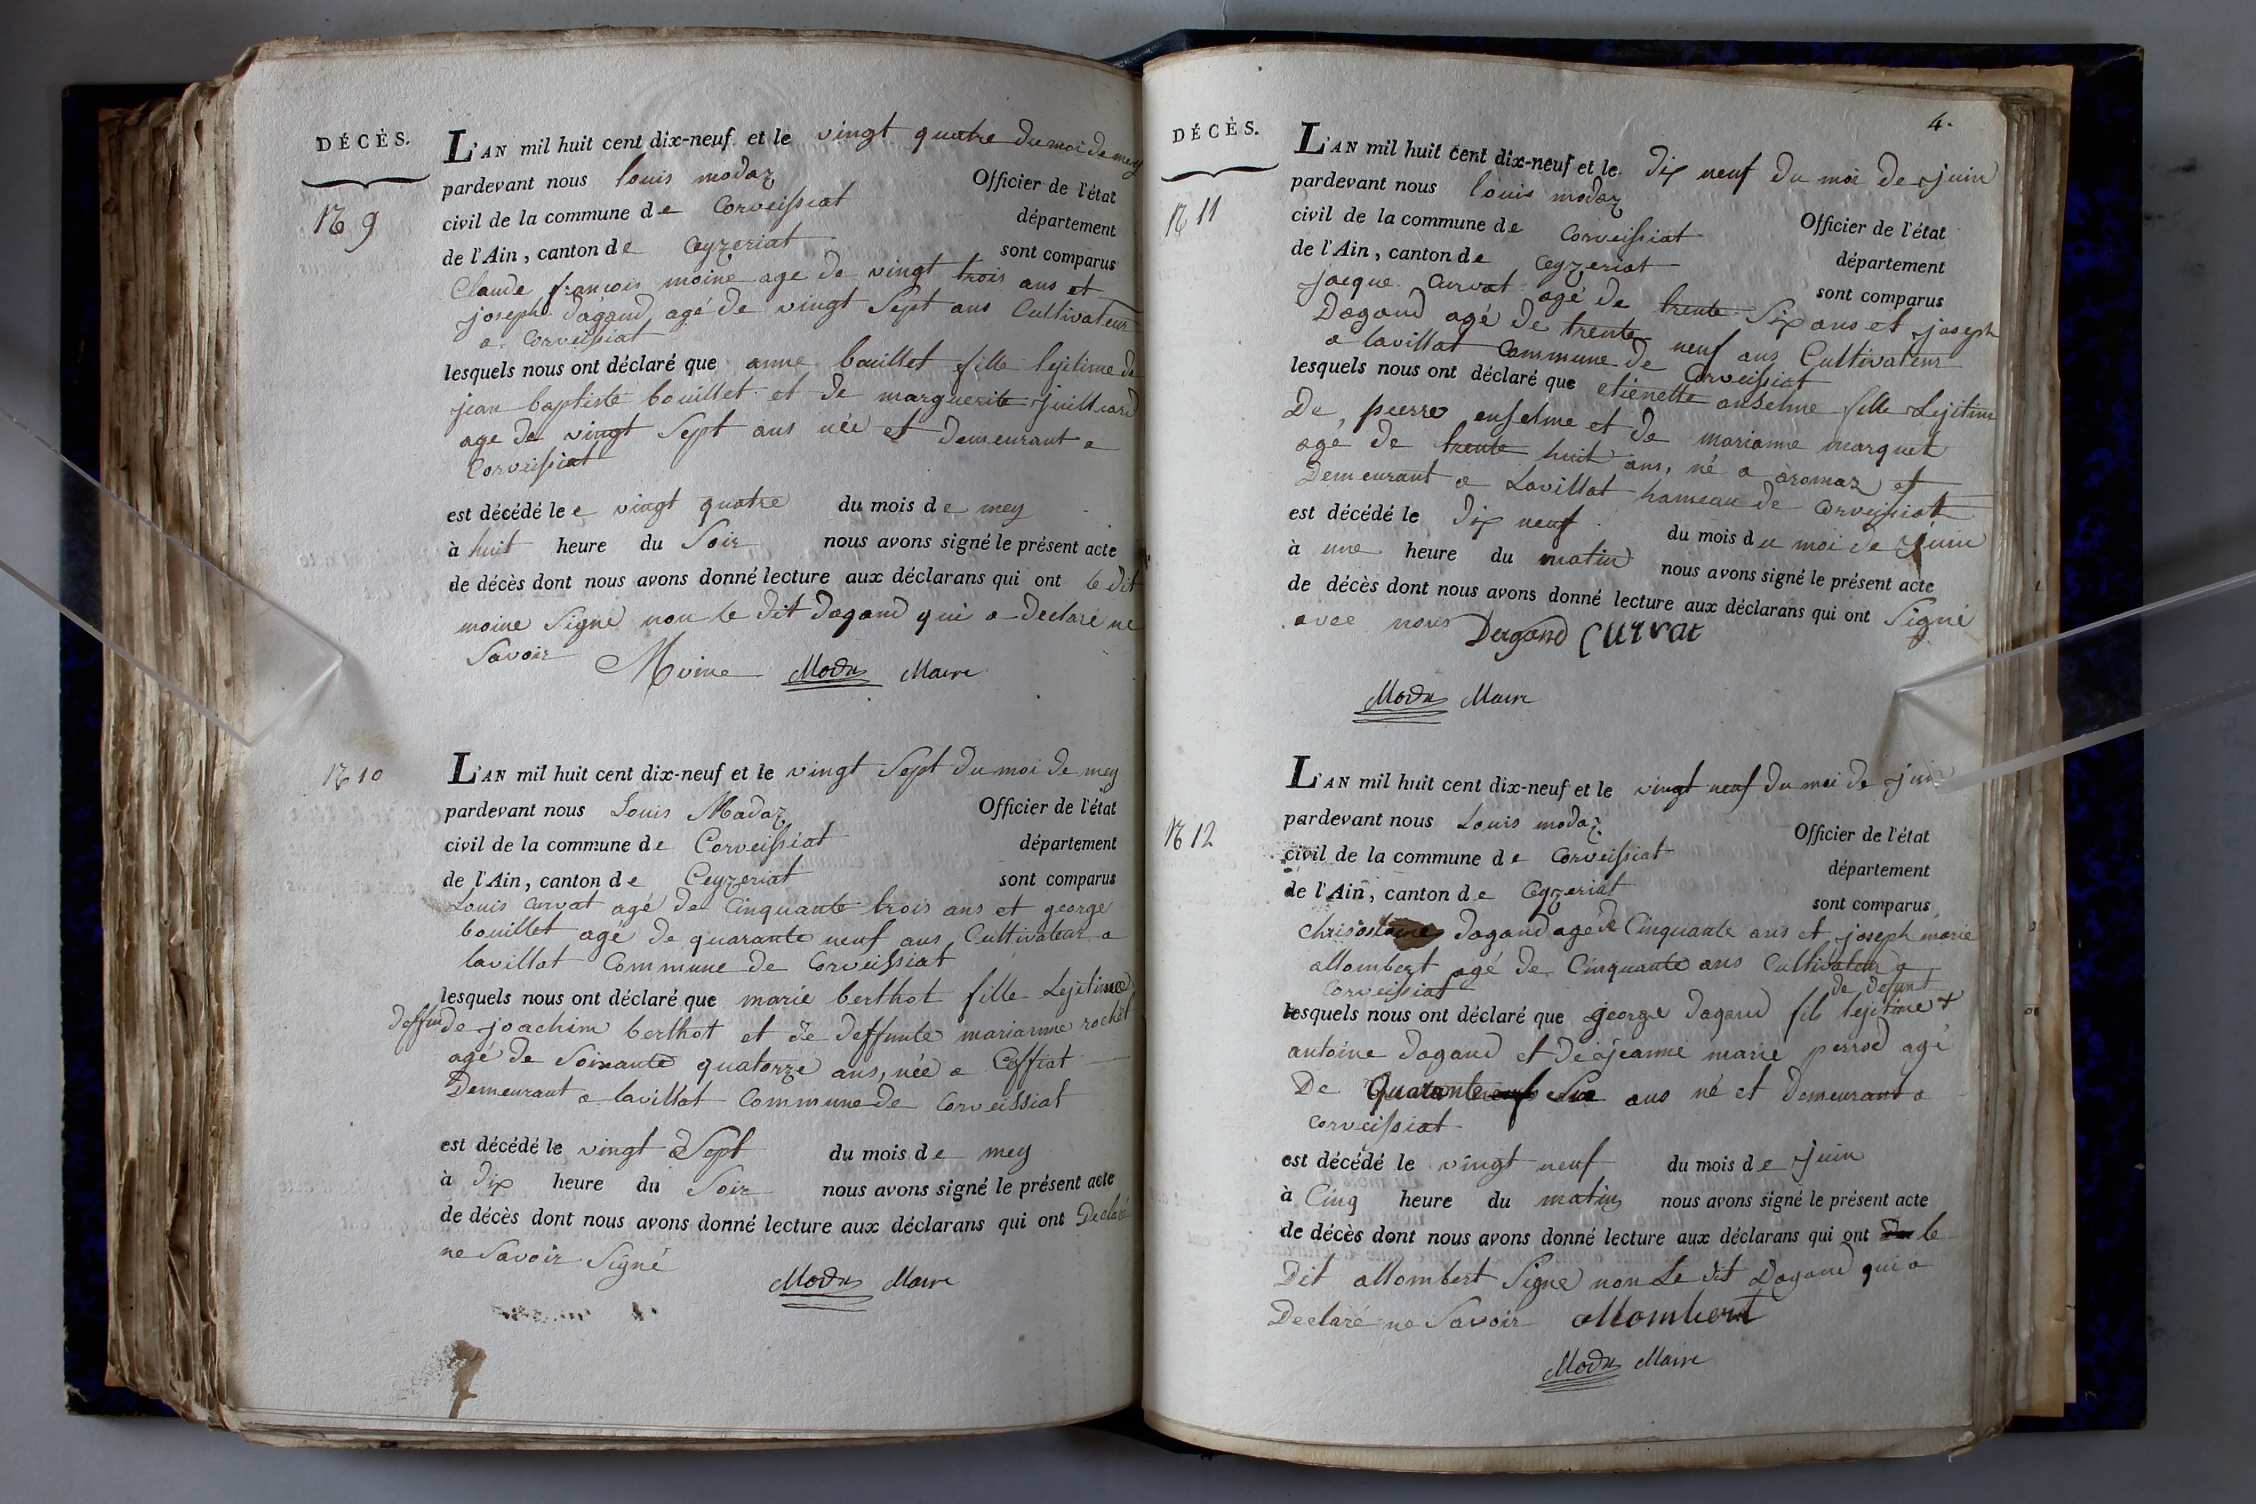 DÉCÈS.
N° 9
L'AN mil huit cent dix-neuf et le vingt quatre du moi de mey
pardevant nous louis modaz Officier de l'état
civil de la commune de Corveissiat département
de l'Ain, canton de Ceyzeriat sont comparus
Claude françois moine age de vingt trois ans et
joseph dagand agé de vingt Sept ans Cultivateur
a Corveissiat
lesquels nous ont déclaré que anne bouillet fille lejitime de
jean baptiste bouillet et de marguerite juillard
age de vingt Sept ans née et Demeurant a
Corveissiat
est décédé le e vingt quatre du mois de mey
à huit heure du Soir nous avons signé le présent acte
de décès dont nous avons donné lecture aux déclarans qui ont le dit
moine Signé non le dit Dagand qui a Declaré ne
Savoir Moine Modas Maire
N° 10
L'AN mil huit cent dix-neuf et le vingt Sept du moi de mey
pardevant nous Louis Madaz Officier de l'état
civil de la commune de Corveissiat département
de l'Ain, canton de Ceyzeriat sont comparus
Louis Curvat agé de Cinquante trois ans et george
bouillet agé de quarante neuf ans Cultivateur a
lavillat Commune de Corveissiat
lesquels nous ont déclaré que marie berthot fille Lejitime
deffun de joachim berthot et de deffunte marianne rochet
agé de Soixante quatorze ans, née a Ceffiat
Demeurant a lavillat Commune de Corveissiat
est décédé le vingt Sept du mois de mey
à dix heure du Soir nous avons signé le présent acte
de décès dont nous avons donné lecture aux déclarans qui ont Declaré
ne Savoir Signé
Modas Maire
4.
DÉCÈS.
N° 11
L'AN mil huit cent dix-neuf et le dix neuf du moi de juin
pardevant nous louis modaz Officier de l'état
civil de la commune de Corveissiat département
de l'Ain, canton de Ceyzeriat sont comparus
jacque Curvat agé de trente Six ans et joseph
Dagand agé de trente neuf ans Cultivateur
a lavillat Commune de Corveissiat
lesquels nous ont déclaré que etienette anselme fille Lejitime
De pierre enselme et de marianne marquet
agé de trente huit ans, né a aromaz et
Demeurant a Lavillat hameau de Corveissiat
est décédé le dix neuf du mois du moi de juin
à une heure du matin nous avons signé le présent acte
de décès dont nous avons donné lecture aux déclarans qui ont Signé
avec nous Dagand Curvat
Modas Maire
N° 12
L'AN mil huit cent dix-neuf et le vingt neuf du moi de juin
pardevant nous Louis modaz Officier de l'état
civil de la commune de Corveissiat département
de l'Ain, canton de Ceyzeriat sont comparus
Chrisostome dagand age de Cinquante ans et joseph marie
allombert agé de Cinquante ans Cultivateur a
Corveissiat de Defunt
lesquels nous ont déclaré que george dagand fils lejitime +
antoine dagand et De jeanne marie perrod agé
De Quarante Six ans né et Demeurant a
Corveissiat
est décédé le vingt neuf du mois de juin
à Cinq heure du matin nous avons signé le présent acte
de décès dont nous avons donné lecture aux déclarans qui ont le
Dit allombert Signe non Le dit Dagand qui a
Declaré ne Savoir allombert
Modas Maire